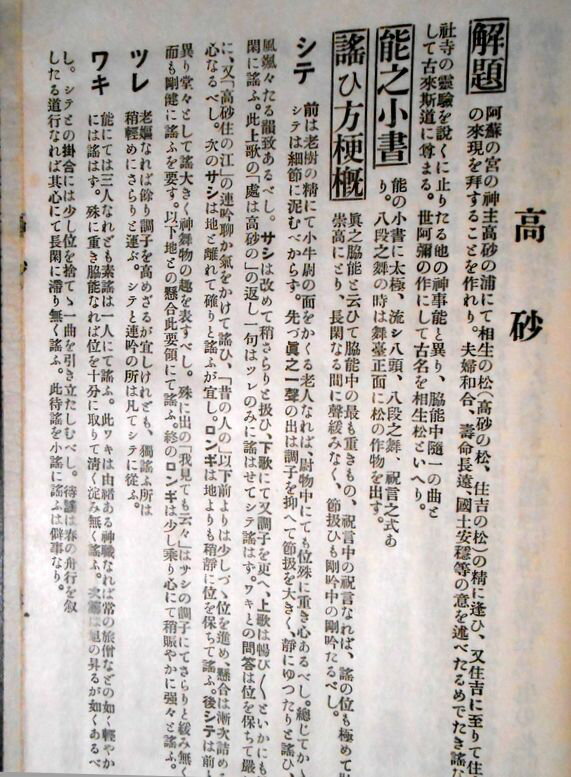 高砂
解題
阿蘇の宮の神主高砂の浦にて相生の松(高砂の松、住吉の松)の精に逢ひ、又住吉に至りて住
の來現を拜することを作れり。夫婦和合、壽命長遠、國土安穩等の意を述べたるめでたき謠
社寺の靈驗を説くに止りたる他の神事能と異り、脇能中隨一の曲と
して古來斯道に尊まる。世阿彌の作にして古名を相生松といへり。
能之小書
能の小書に太極、流シ八頭、八段之舞、祝言之式あ
り。八段之舞の時は舞臺正面に松の作物を出す。
謠ひ方梗概
眞之脇能と云ひて脇能中の最も重きもの、祝言中の祝言なれば、謠の位も極めて
崇高にとり、長閑なる間に聲緩みなく、節扱ひも剛吟中の剛吟たるべし。
シテ
前は老樹の精にて小牛尉の面をかくる老人なれば、尉物中にても位殊に重き心あるべし。總じてか
シテは細節に泥むべからず。先づ眞之一聲の出は調子を抑へて節扱を大きく、靜にゆつたりと謠ひ、
風颯々たる韻致あるべし。サシは改めて稍さらりと扱ひ、下歌にて又調子を更へ、上歌は暢び〱といかにも
閑に謠ふ。此上歌の「處は高砂の」の返し一句はツレのみに謠はせてシテ謠はす。ワキとの問答は位を保ちて嚴
に、又「高砂住の江」の連吟聊か氣をかけて謠ひ、「昔の人の」以下前よりは少しづゝ位を進め、懸合は漸次詰める
心なるべし。次のサシは地と離れて確りと謠ふが宜し。ロンギは地よりも稍靜に位を保ちて謠ふ。後シテは前と
異り堂々として謠大きく神舞物の趣を表すべし。殊に出の「我見ても云々」はサシの調子にてさらりと緩み無く
而も剛健に謠ふを要す。以下地との懸合此要領にて謠ふ。終のロンギは少し乘り心にて稍賑やかに强々と謠ふ。
ツレ
老嫗なれば餘り調子を高めざるが宜しけれども、獨謠ふ所は
稍輕めにさらりと運ぶ。シテと連吟の所は凡てシテに從ふ。
ワキ
能にては三人なれども素謠は一人にて謠ふ。此ワキは由緖ある神職なれば常の旅僧などの如く輕やか
には謠はす。殊に重き脇能なれば位を十分に取りて淸く淀み無く謠ふ。次第は旭の昇るが如くあるべ
し。シテとの掛合には少し位を捨てゝ一曲を引き立たしむべし。待謠は春の舟行を敍
したる道行なれば其心にて長閑に滯り無く謠ふ。此待謠を小謠に謠ふは僻事なり。